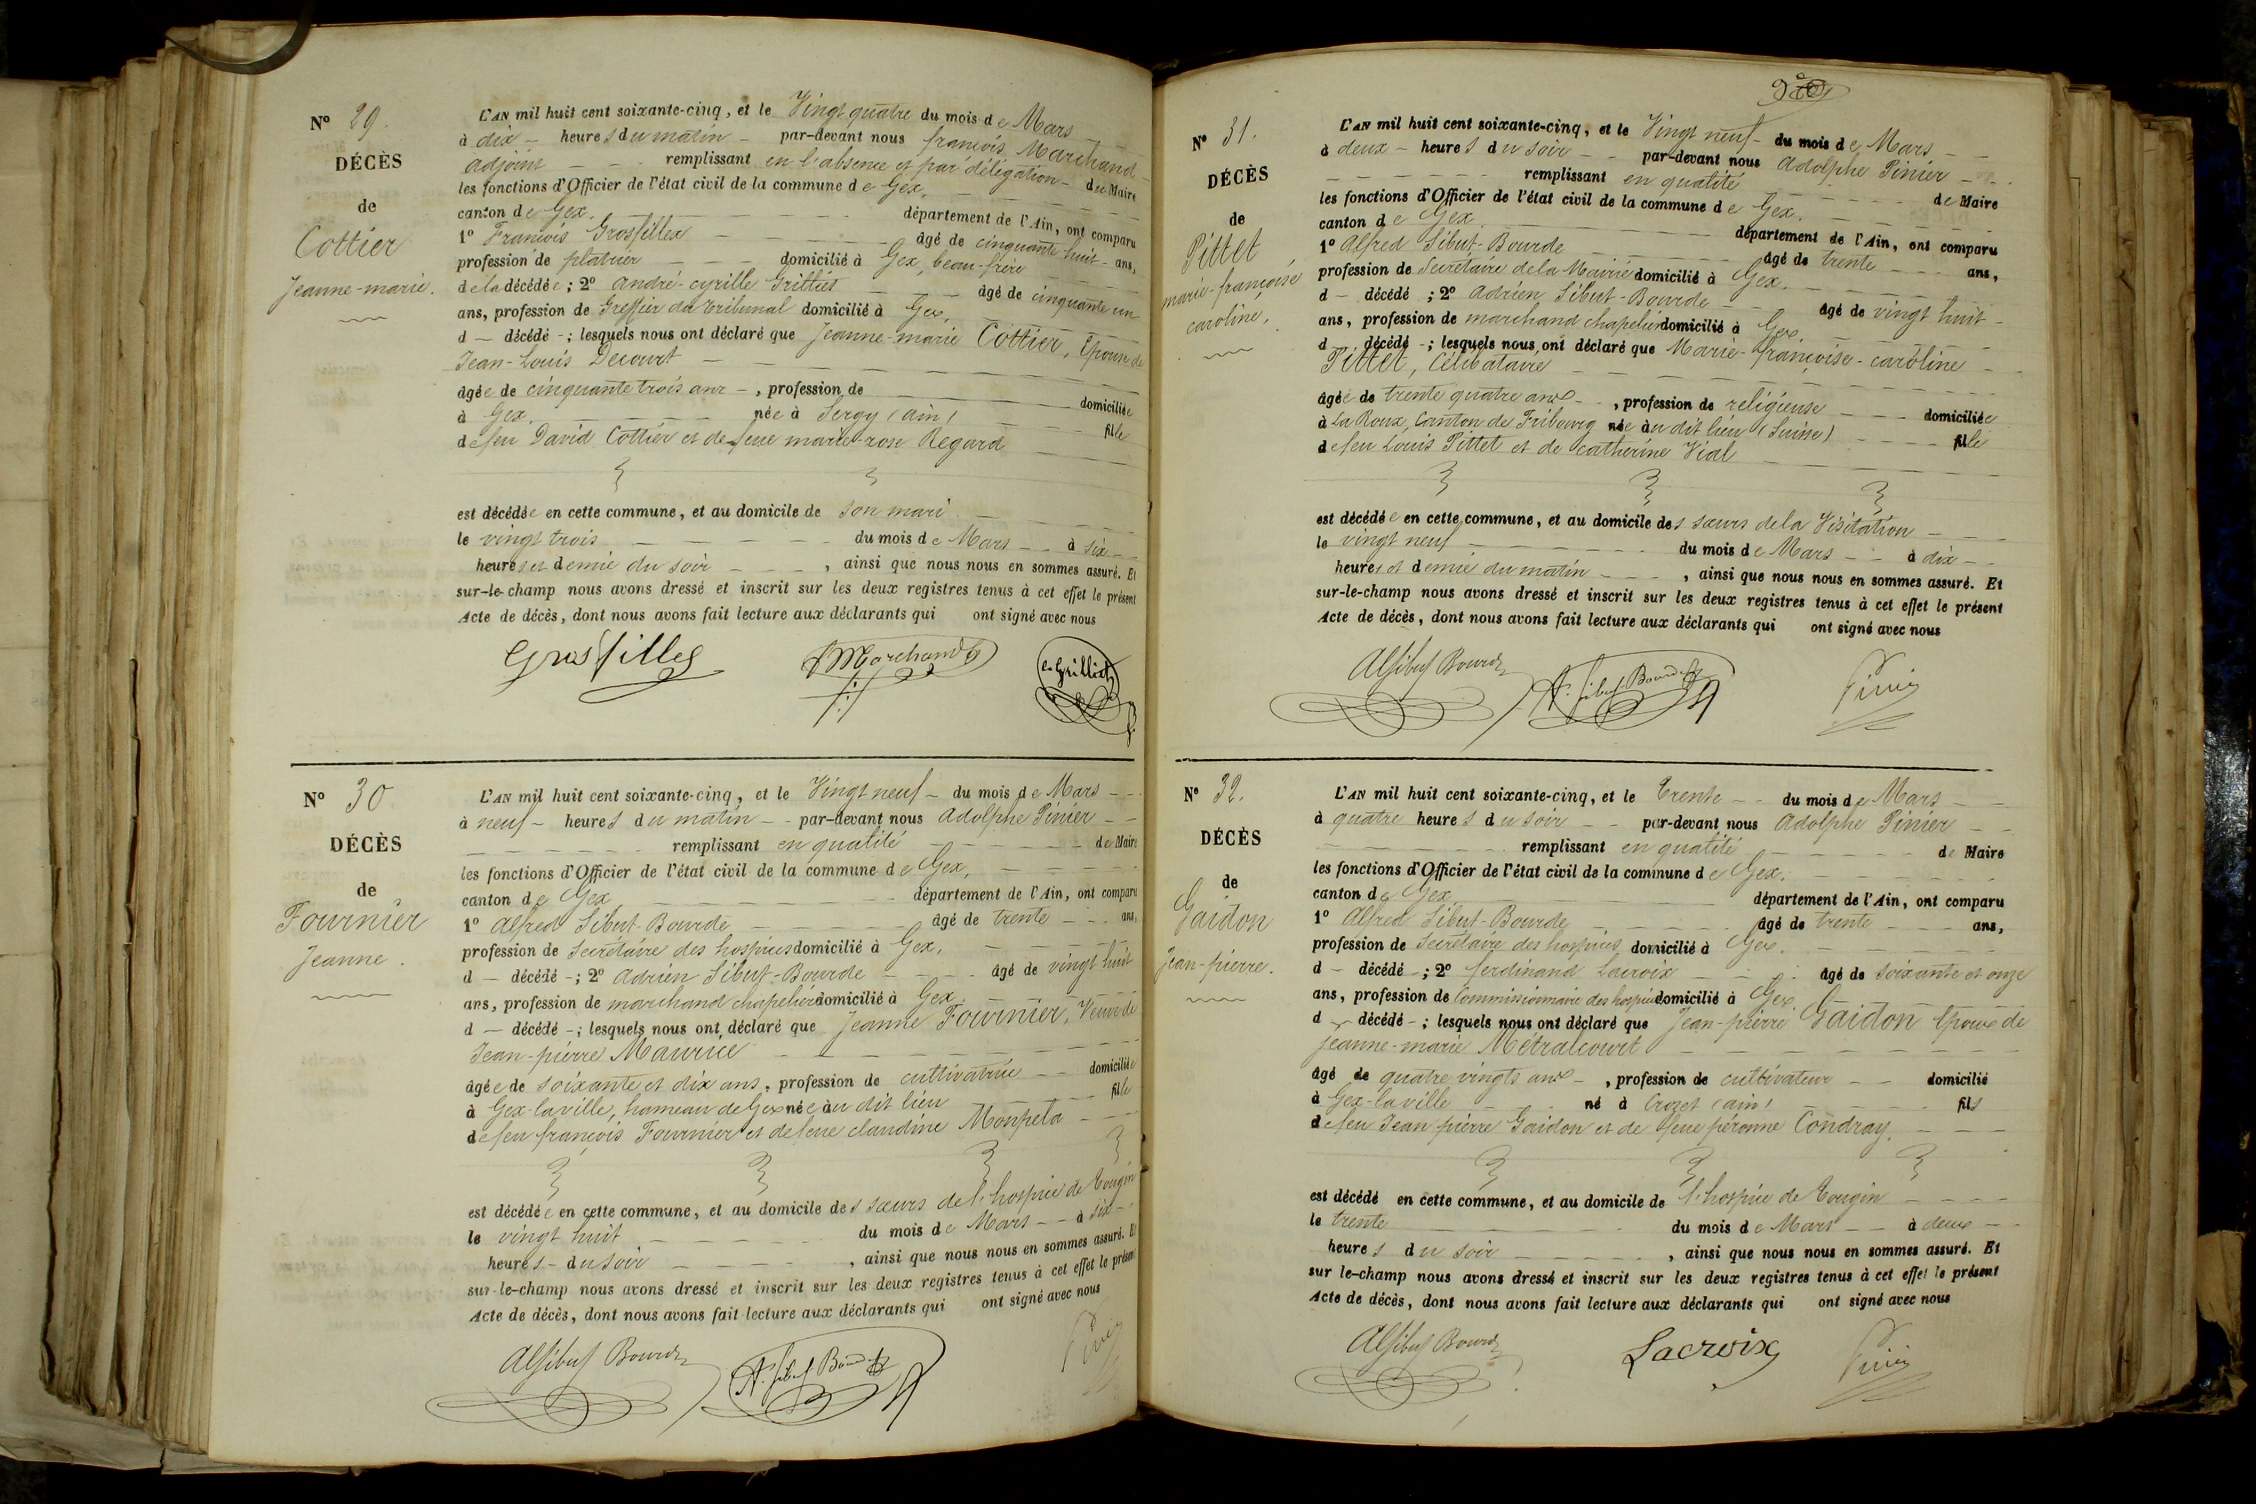 Nº 29.
DÉCÈS
de
Cottier
Jeanne-marie.
L'AN mil huit cent soixante-cinq, et le Vingt quatre du mois de Mars
à dix heures du matin par-devant nous françois Marchand
adjoint remplissant en l'absence et par délégation du Maire
les fonctions d'Officier de l'état civil de la commune de Gex,
canton de Gex. département de l'Ain, ont comparu
1º François Grosfillex âgé de cinquante huit ans,
profession de platrier domicilié à Gex, beau-frère
de la décédée; 2º andré-cyrille Grilliet âgé de cinquante un
ans, profession de Greffier du tribunal domicilié à Gex,
d décédé; lesquels nous ont déclaré que Jeanne-marie Cottier, Epouse de
Jean-Louis Decourt
âgée de cinquante trois ans, profession de domiciliée
à Gex. née à Sergy (ain) fille
de feu David Cottier et de feue marie-rose Regard
est décédée en cette commune, et au domicile de son mari
le vingt trois du mois de Mars à six
heures et demie du soir, ainsi que nous nous en sommes assuré. Et
sur-le-champ nous avons dressé et inscrit sur les deux registres tenus à cet effet le présent
Acte de décès, dont nous avons fait lecture aux déclarants qui ont signé avec nous
Grosfillex Marchand C. Grilliet
Nº 30
DÉCÈS
de
Fournier
Jeanne.
L'AN mil huit cent soixante-cinq, et le Vingt neuf du mois de Mars
à neuf heures du matin par-devant nous Adolphe Pinier
remplissant en qualité de Maire
les fonctions d'Officier de l'état civil de la commune de Gex,
canton de Gex département de l'Ain, ont comparu
1º Alfred Sibut-Bourde âgé de trente ans,
profession de Secrétaire des hospices domicilié à Gex,
d décédé; 2º Adrien Sibut-Bourde âgé de vingt huit
ans, profession de marchand chapelier domicilié à Gex
d décédé; lesquels nous ont déclaré que Jeanne Fournier, Veuve de
Jean-pierre Maurice
âgée de soixante et dix ans, profession de cultivatrice domiciliée
à Gex-laville, hameau de Gex née au dit lieu fille
de feu françois Fournier et de feue claudine Monpela
est décédée en cette commune, et au domicile des sœurs de l'hospice de Tougin
le vingt huit du mois de Mars à six
heures du soir, ainsi que nous nous en sommes assuré. Et
sur-le-champ nous avons dressé et inscrit sur les deux registres tenus à cet effet le présent
Acte de décès, dont nous avons fait lecture aux déclarants qui ont signé avec nous
A Sibut Bourde A. Sibut Bourde Pinier
Nº 31.
DÉCÈS
de
Pittet
marie-françoise
caroline,
L'AN mil huit cent soixante-cinq, et le Vingt neuf du mois de Mars
à deux heures du soir par-devant nous Adolphe Pinier
remplissant en qualité de Maire
les fonctions d'Officier de l'état civil de la commune de Gex.
canton de Gex département de l'Ain, ont comparu
1º Alfred Sibut-Bourde âgé de trente ans,
profession de Secrétaire de la Mairie domicilié à Gex.
d décédé; 2º Adrien Sibut-Bourde âgé de vingt huit
ans, profession de marchand chapelier domicilié à Gex
d décédé; lesquels nous ont déclaré que Marie-françoise-caroline
Pittet, Célibataire
âgée de trente quatre ans, profession de religieuse domiciliée
à La Roux, Canton de Fribourg née au dit lieu (Suisse) fille
de feu Louis Pittet et de catherine Vial
est décédée en cette commune, et au domicile des sœurs de la Visitation
le vingt neuf du mois de Mars à dix
heures et demie du matin, ainsi que nous nous en sommes assuré. Et
sur-le-champ nous avons dressé et inscrit sur les deux registres tenus à cet effet le présent
Acte de décès, dont nous avons fait lecture aux déclarants qui ont signé avec nous
A Sibut Bourde A. Sibut Bourde Pinier
Nº 32.
DÉCÈS
de
Gaidon
Jean-pierre.
L'AN mil huit cent soixante-cinq, et le Trente du mois de Mars
à quatre heures du soir par-devant nous Adolphe Pinier
remplissant en qualité de Maire
les fonctions d'Officier de l'état civil de la commune de Gex.
canton de Gex département de l'Ain, ont comparu
1º Alfred Sibut-Bourde âgé de trente ans,
profession de Secrétaire des hospices domicilié à Gex.
d décédé; 2º ferdinand Lacroix âgé de soixante et onze
ans, profession de Commissionnaire des hospices domicilié à Gex
d décédé; lesquels nous ont déclaré que Jean-pierre Gaidon Epoux de
Jeanne-marie Métralcourt
âgé de quatre vingts ans, profession de cultivateur domicilié
à Gex-laville né à Crozet (ain) fils
de feu Jean pierre Gaidon et de feue péronne Condray.
est décédé en cette commune, et au domicile de l'hospice de Tougin
le trente du mois de Mars à deux
heures du soir, ainsi que nous nous en sommes assuré. Et
sur le-champ nous avons dressé et inscrit sur les deux registres tenus à cet effet le présent
Acte de décès, dont nous avons fait lecture aux déclarants qui ont signé avec nous
A Sibut Bourde Lacroix Pinier